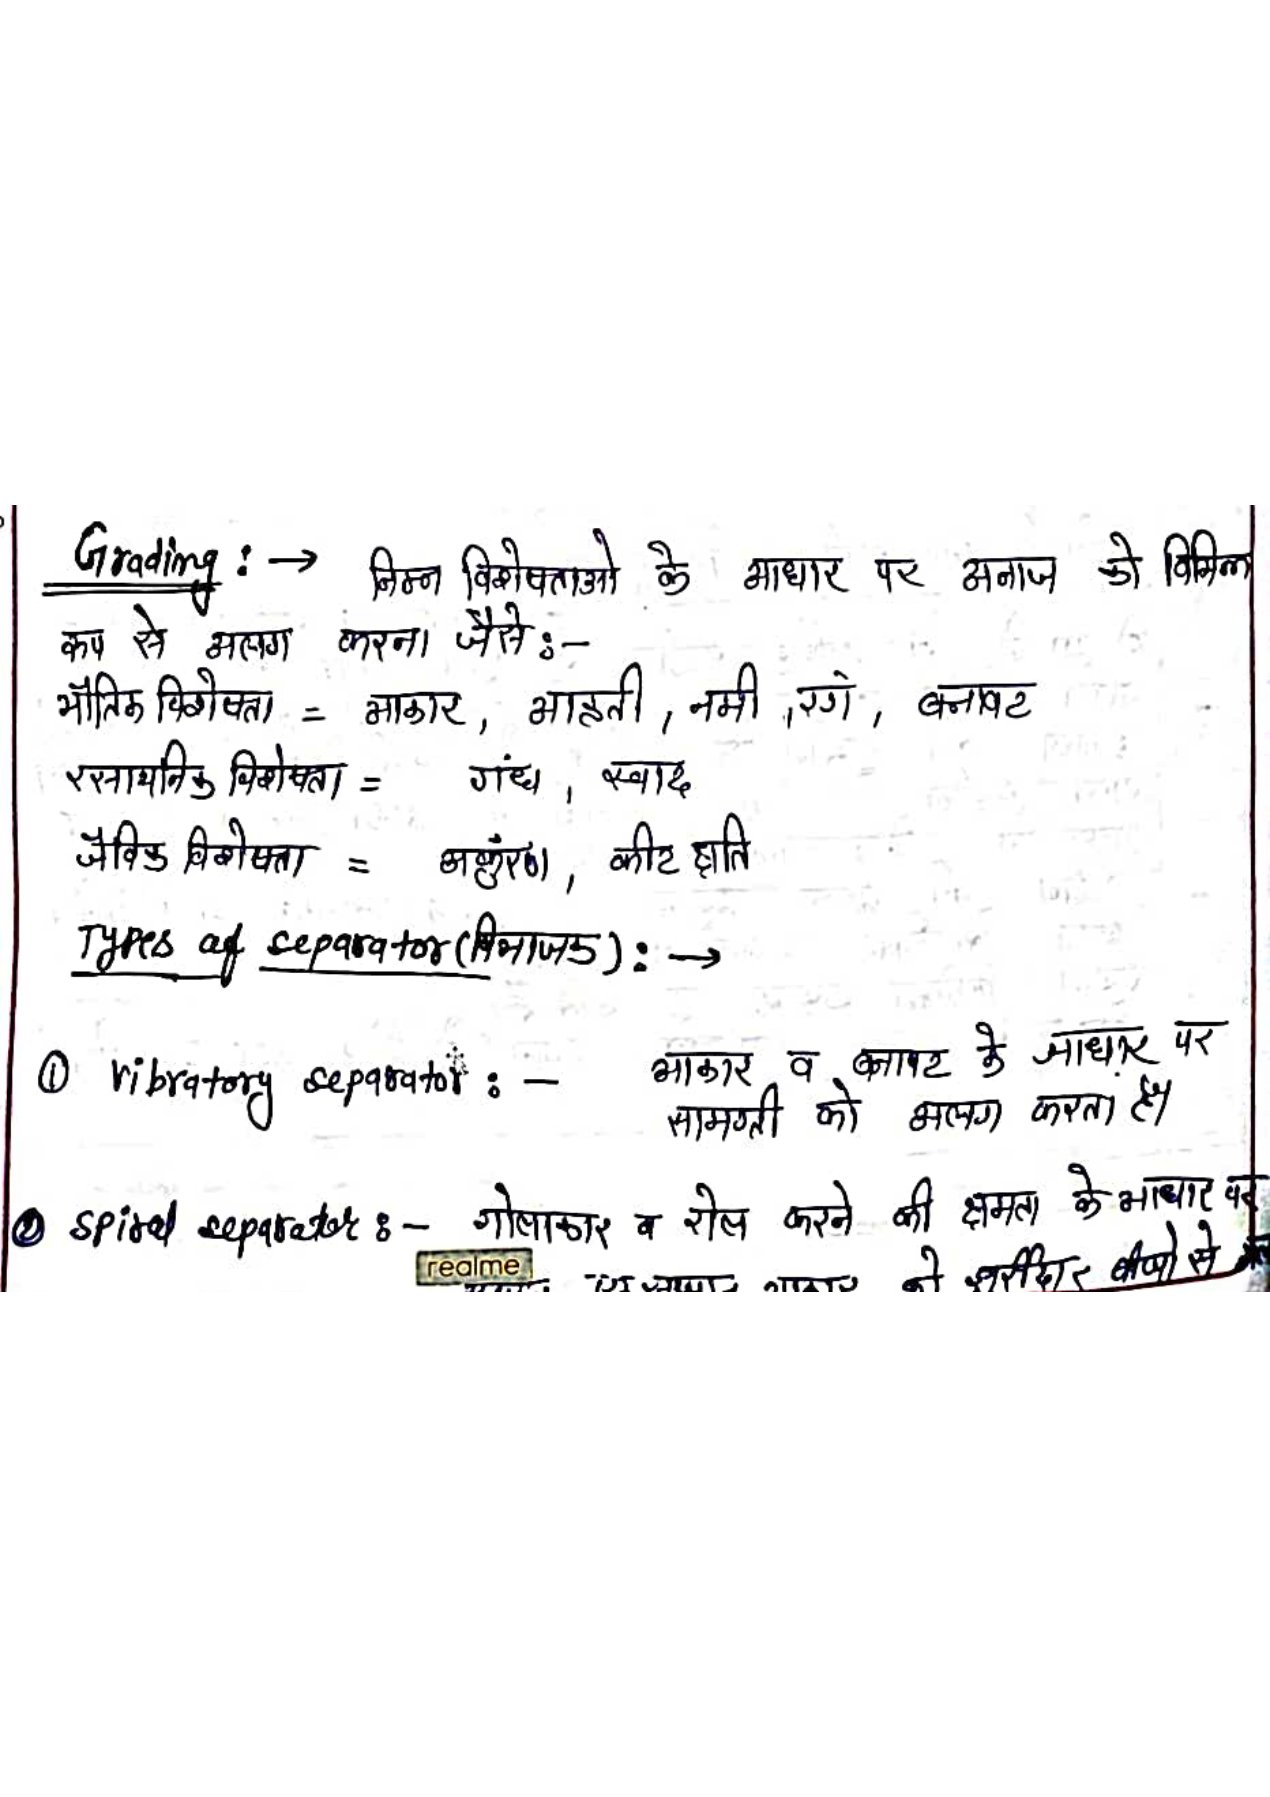 Grading :→ निम्न विशेषताओ के आधार पर अनाज को विभिन्न
रुप से अलग करना जैसे :-
भौतिक विशेषता = आकार, आकृती, नमी, रगं, बनावट
रसायनिक विशेषता = गंध, स्वाद
जैविक विशेषता = अकुंरण, कीट क्षति
Types of separator (विभाजक) :→
① vibratory separator :- आकार व बनावट के आधार पर
सामग्री को अलग करता है।
② spiral separator :- गोलाकार व रोल करने की क्षमता के आधार पर
realme
आकार को बीजो से